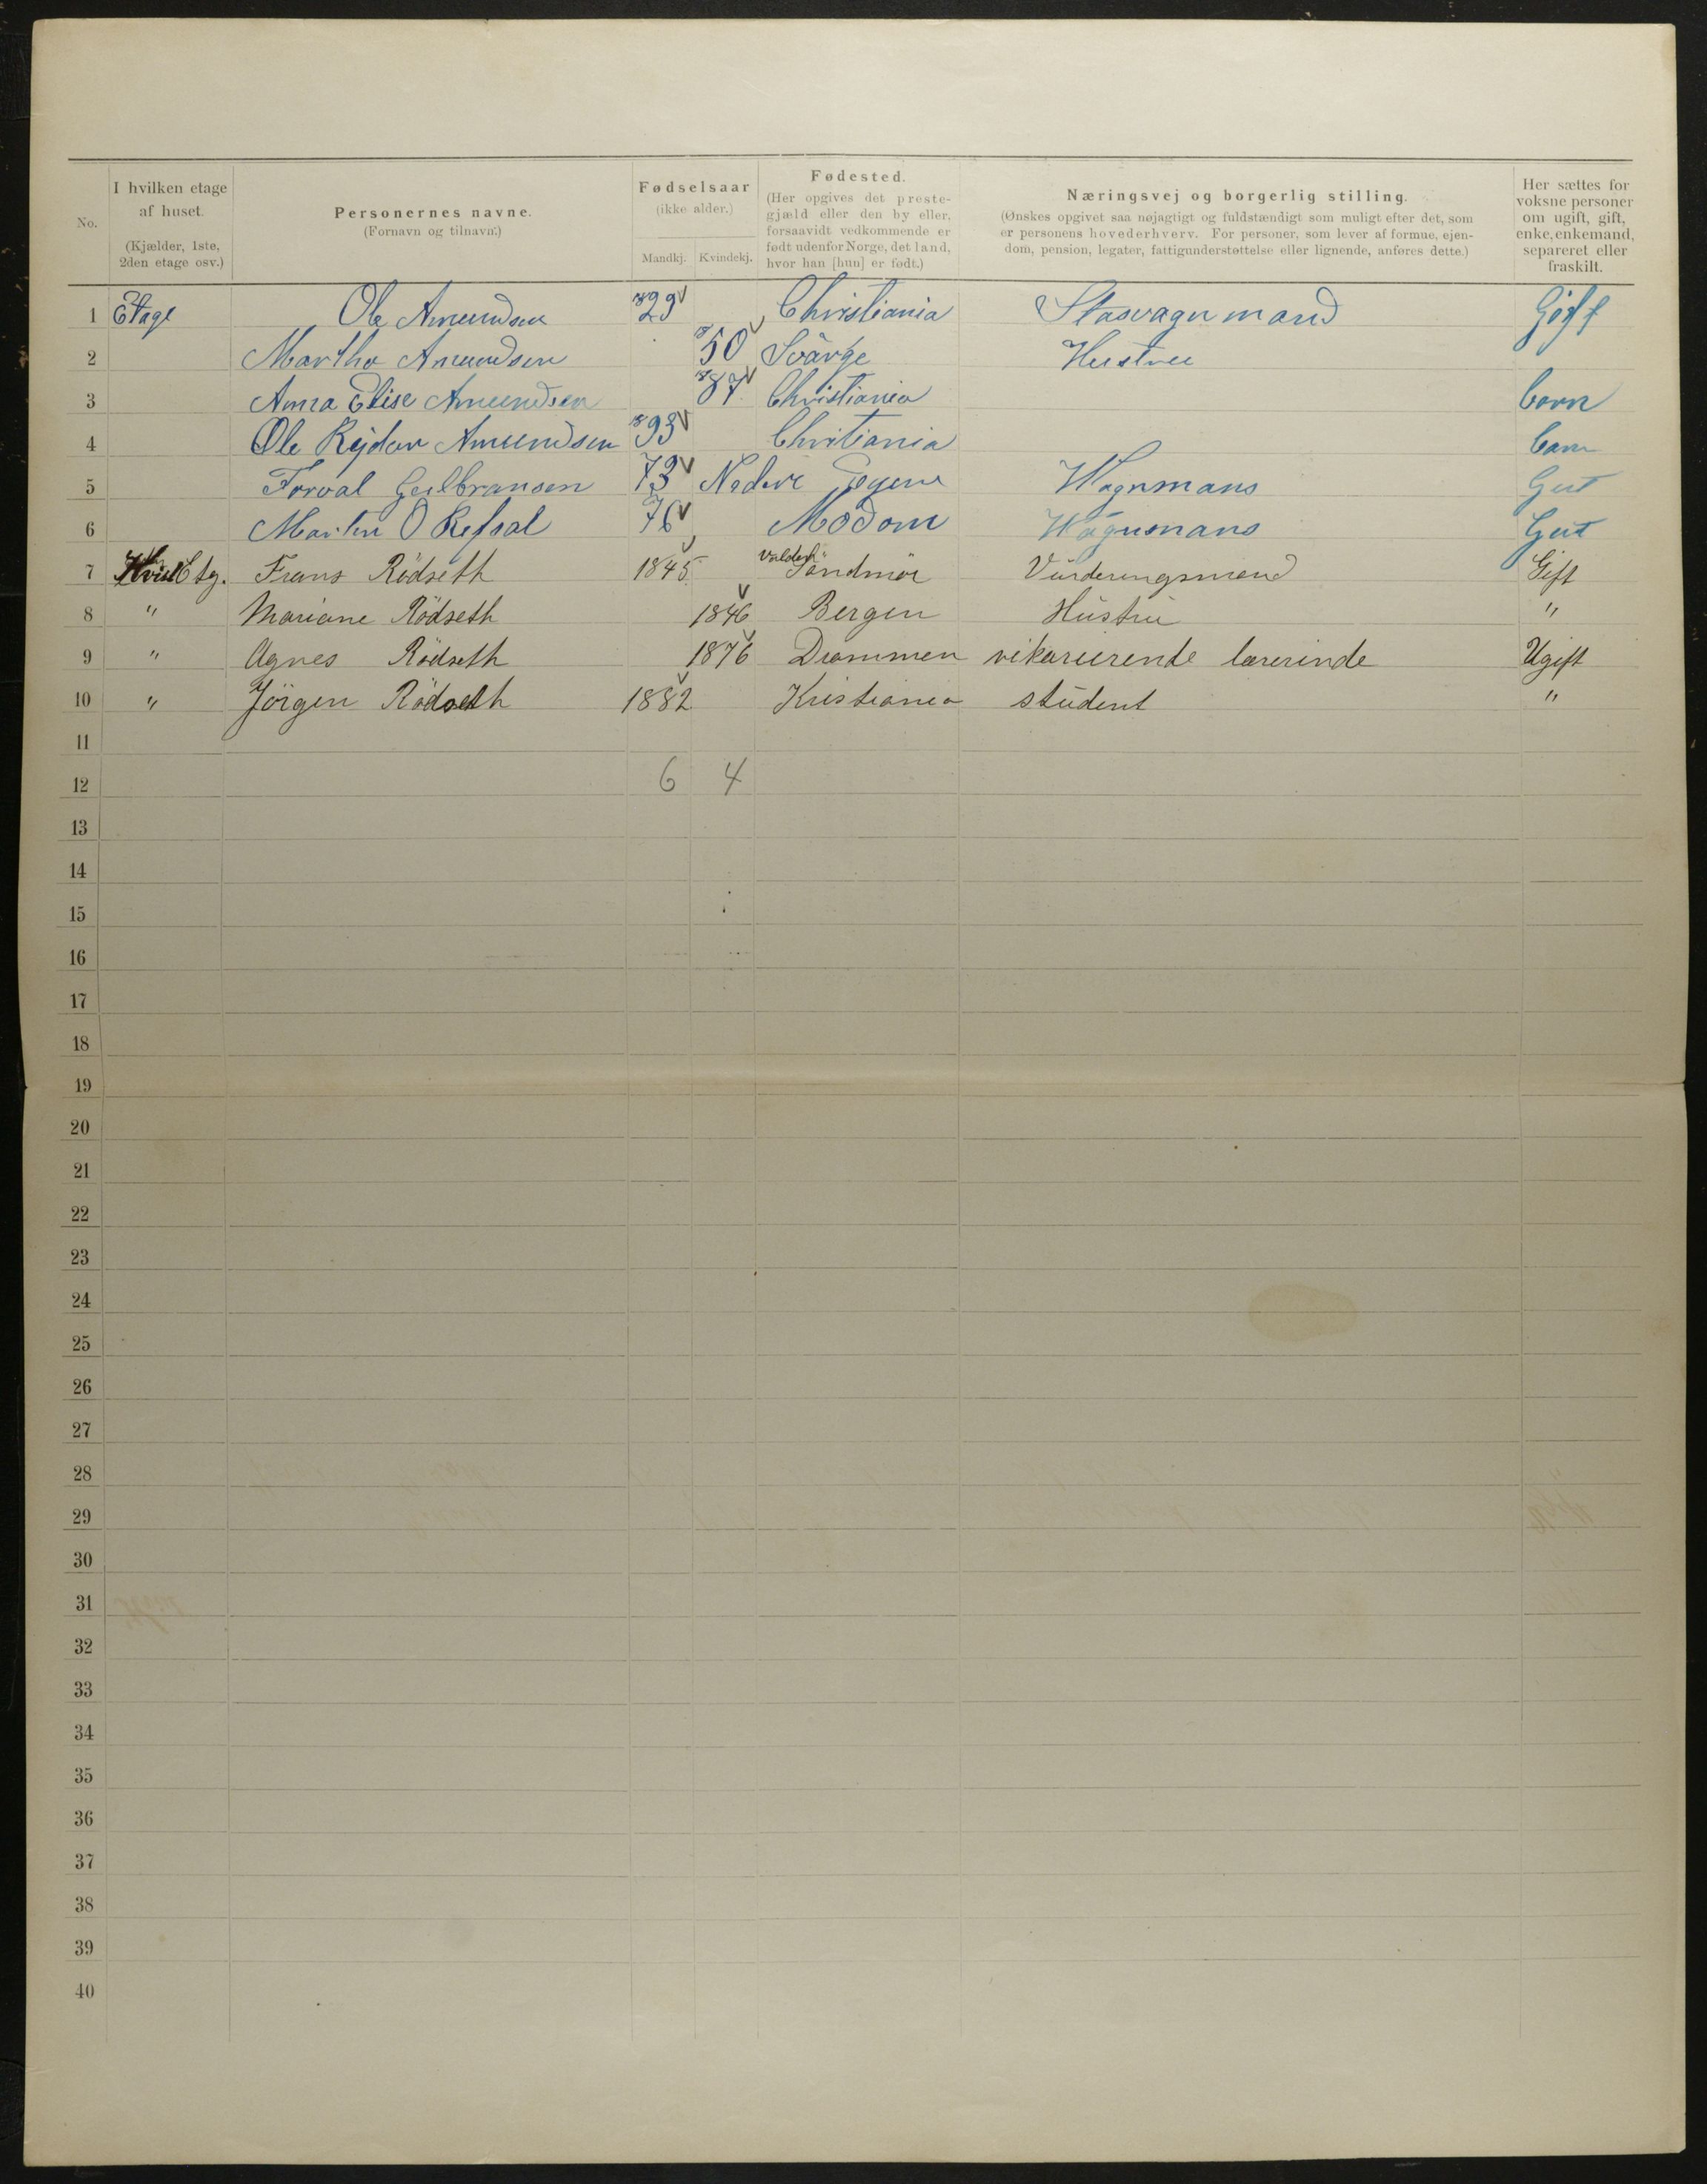 No. | I hvilken etage af huset. (Kjælder, 1ste, 2den etage osv.) | Personernes navne. (Fornavn og tilnavn.) | Fødselsaar (ikke alder.) Mandkj. Kvindekj. | Fødested. (Her opgives det prestegjæld eller den by eller, forsaavidt vedkommende er født udenfor Norge, det land, hvor han [hun] er født.) | Næringsvej og borgerlig stilling. (Ønskes opgivet saa nøjagtigt og fuldstændigt som muligt efter det, som er personens hovederhverv. For personer, som lever af formue, ejendom, pension, legater, fattigunderstøttelse eller lignende, anføres dette.) | Her sættes for voksne personer om ugift, gift, enke, enkemand, separeret eller fraskilt.
1 Etage Ole Amundsen 29 Christiania Gift
2 Martha Amundsen 50 Svärge Hustru
3 Anna Elise Amundsen 87 Christiania barn
4 Ole Rejdar Amundsen 93 Chritiania barn
5 Torval Gulbransen 73 Nedre Wognmans Gut
6 Martin O Refsal 76 Modom Wognmans Gut
7 Etg. Frans Rödseth 1845 Söndmör Vurderingsmand Gift
8 " Mariane Rödseth 1846 Bergen Hustru "
9 " Agnes Rödseth 1876 Drammen vikarierende lærerinde Ugift
10 " Jörgen Rödseth 1882 Kristiania student "
11
12 6 4
13
14
15
16
17
18
19
20
21
22
23
24
25
26
27
28
29
30
31
32
33
34
35
36
37
38
39
40